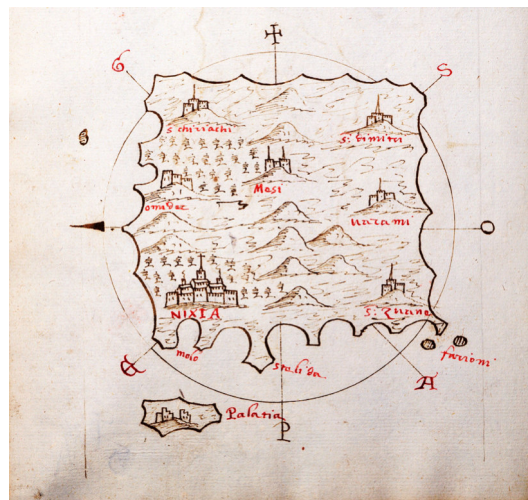 G
S
s. chiriachi
s. dimitri
Mosi
uarami
O
NIXIA
s. Zuane
molo
stalida
farioni
A
Palatia
P